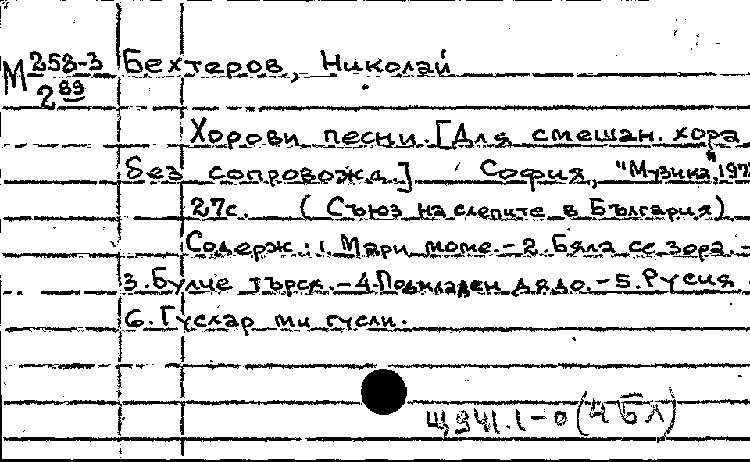 М 258-3 Бехтеров, Николай
2 89
Хорови песни. [Для смешан. хора
без сопровожд.] София, "Музика", 197
27с. (Съюз на слепите в България)
Содерж.: 1. Мари моме. - 2. Бяла се зора. -
3. Булче търся. - 4. Подмладен дядо. - 5. Русия
6. Гуслар ми гусли.
Щ941.1-0(4 Бл)